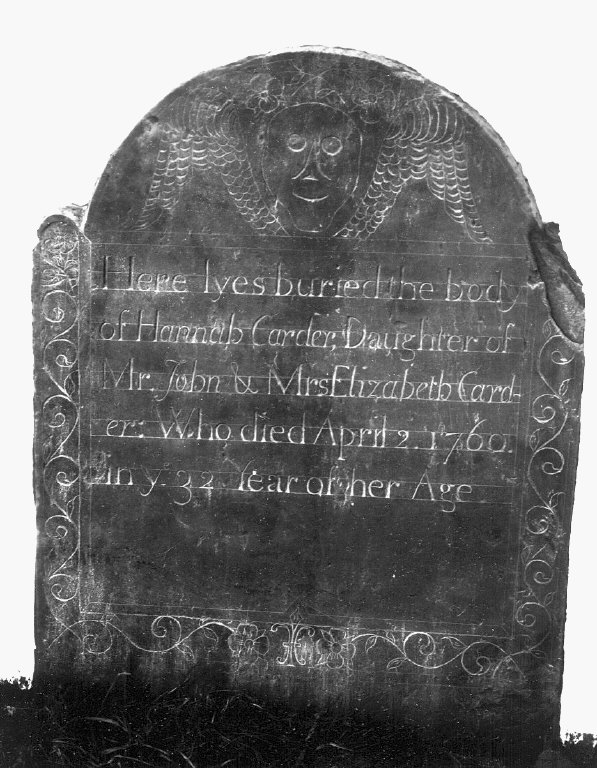 Here lyes buried the body
of Hannah Carder, Daughter of
Mr. John & Mrs Elizabeth Card-
er: Who died April 2. 1760.
in y. 32. Year of her Age